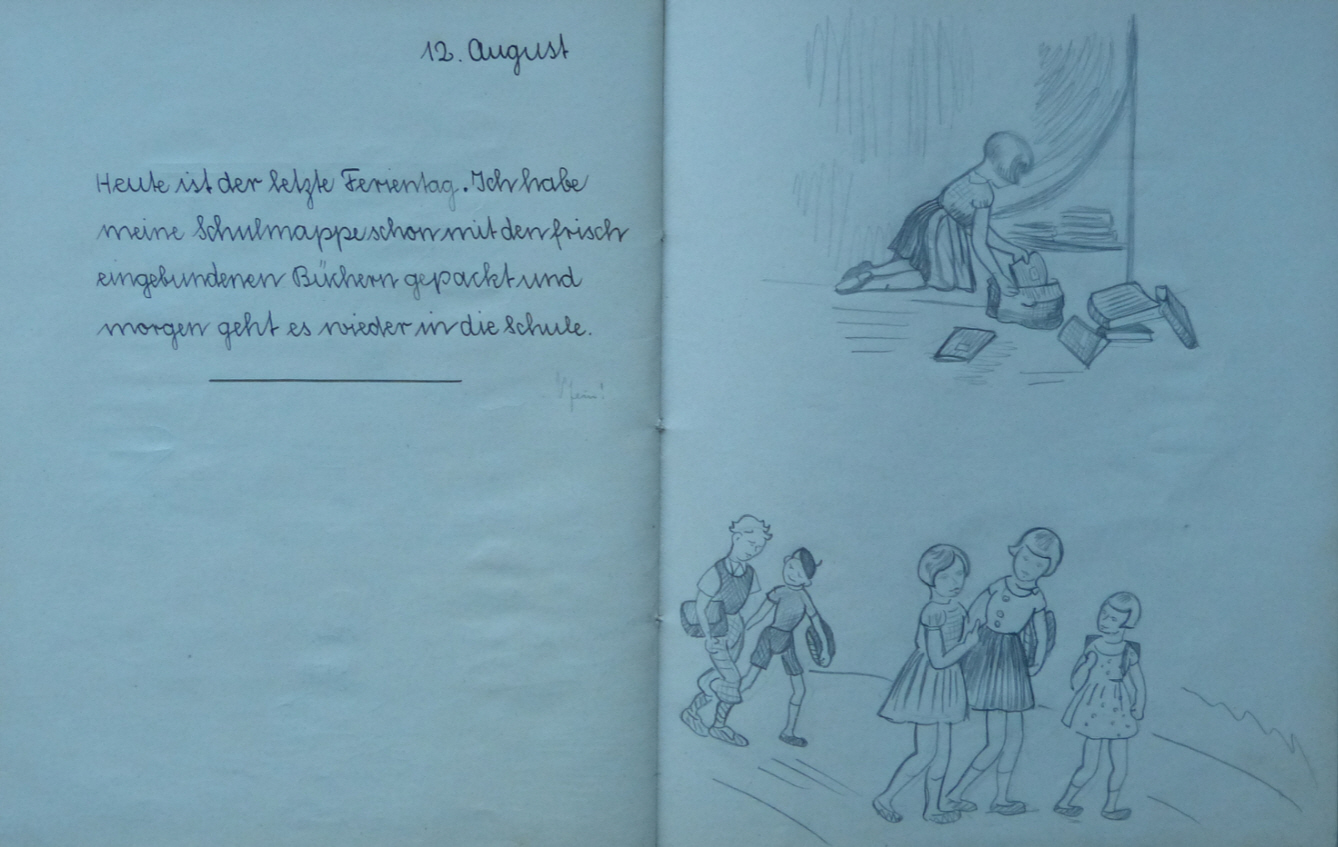 12. August
Heute ist der letzte Ferientag. Ich habe
meine Schulmappe schon mit den frisch
eingebundenen Büchern gepackt und
morgen geht es wieder in die Schule.